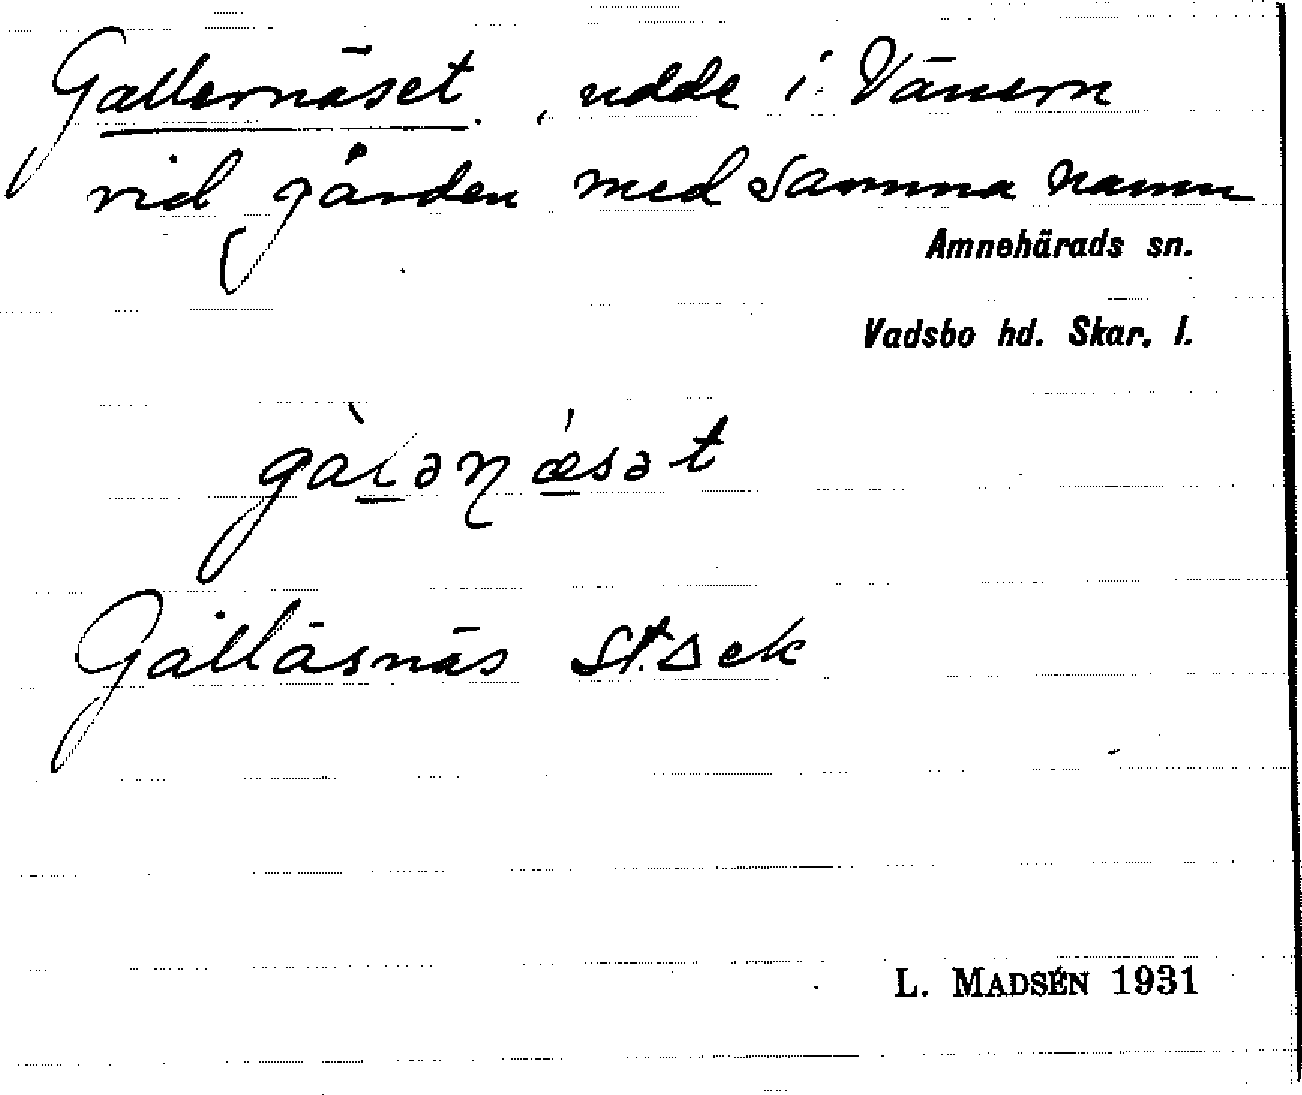 Gallernäset, udde i Vänern
vid gården med samma namn
Amnehärads sn.
Vadsbo hd. Skar. l.
Gallåsnäs
L. MADSÉN 1931